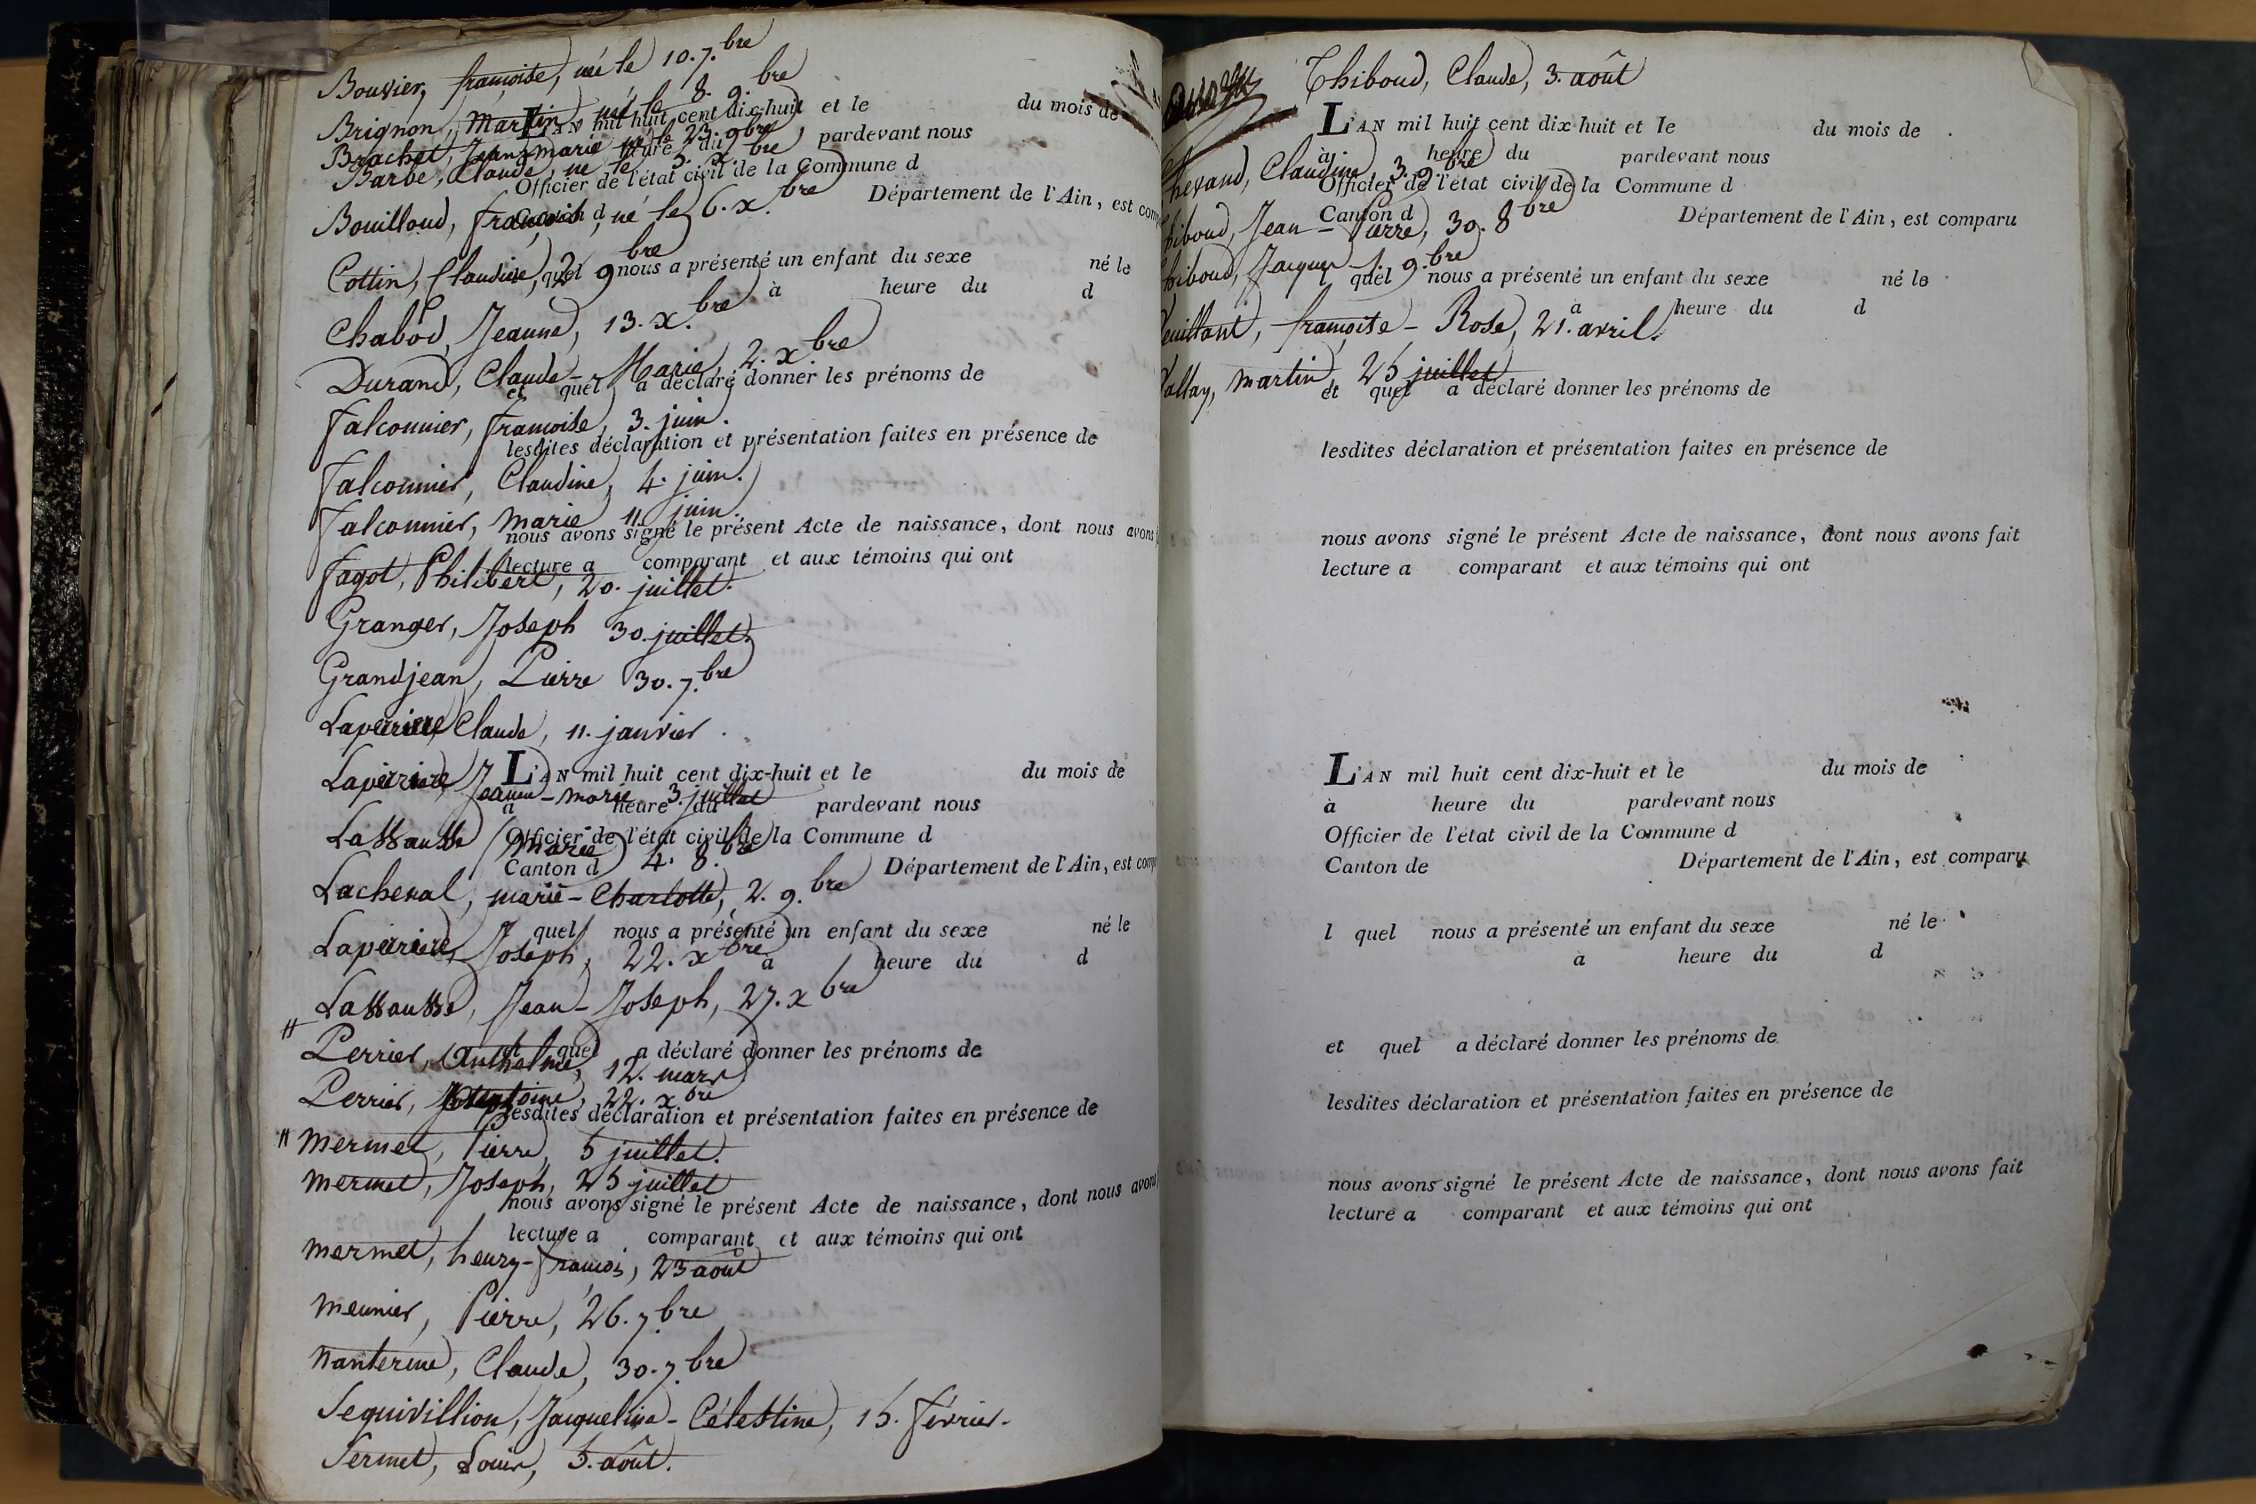 Bouvier, françoise, née le 10. 7.bre
Brignon, Martin, né le 8. 9.bre
L'AN mil huit cent dix-huit et le du mois de
Brachet, Jean-marie né le 23. 9bre
à heure du pardevant nous
Barbe, Claude, né le 5. X bre
Officier de l'état civil de la Commune d
Canton d Département de l'Ain, est comp
Bouilloud, françois, né le 6. x.bre
Cottin, Claudine, 2 9bre
quel nous a présenté un enfant du sexe né le
à heure du d
Chabod, Jeanne, 13. x.bre
Durand, Claude-Marie, 2. x.bre
et quel a déclaré donner les prénoms de
falconnier, françoise, 3. juin.
lesdites déclaration et présentation faites en présence de
falconnier, Claudine, 4. juin.
falconnier, marie 11. juin.
nous avons signé le présent Acte de naissance, dont nous avons
lecture a comparant et aux témoins qui ont
fagot, Philibert, 20. juillet.
Granger, Joseph 30. juillet.
Grandjean, Pierre 30. 7.bre
Laperriere, Claude, 11. janvier.
L'AN mil huit cent dix-huit et le du mois de
Laperriere, Jeanne-marie 3. juillet
à heure du pardevant nous
Officier de l'état civil de la Commune d
Lassausse, Marie 4. 8.bre
Canton d Département de l'Ain, est comp
Lachenal, marie-Charlotte, 2. 9.bre
quel nous a présenté un enfant du sexe né le
Laperriere, Joseph, 22. x bre
à heure du d
Lassausse, Jean-Joseph, 27. x bre
Perrier, Anthelme, 12. mars
et quel a déclaré donner les prénoms de
Perrier, Antoine, 22. x bre
lesdites déclaration et présentation faites en présence de
mermet, Pierre, 5 juillet.
mermet, Joseph, 25 juillet
nous avons signé le présent Acte de naissance, dont nous avons
lecture a comparant et aux témoins qui ont
mermet, henry-françois, 23 août
meunier, Pierre, 26. 7.bre
nanterme, Claude, 30. 7.bre
Sequivillion, Jacqueline-Célestine, 15. février.
Sermet, Louis, 5. août.
Thiboud, Claude, 3. août
L'AN mil huit cent dix-huit et le du mois de
à heure du pardevant nous
hevand, Claudine, 3. 9.bre
Officier de l'état civil de la Commune d
Canton d Département de l'Ain, est comparu
hiboud, Jean-Pierre, 30. 8bre
hiboud, Jacques 1. 9.bre
l quel nous a présenté un enfant du sexe né le
à heure du d
euillant, françoise-Rose, 21. avril.
allay, martin, 25 juillet
et quel a déclaré donner les prénoms de
lesdites déclaration et présentation faites en présence de
nous avons signé le présent Acte de naissance, dont nous avons fait
lecture a comparant et aux témoins qui ont
L'AN mil huit cent dix-huit et le du mois de
à heure du pardevant nous
Officier de l'état civil de la Commune d
Canton de Département de l'Ain, est comparu
l quel nous a présenté un enfant du sexe né le
à heure du d
et quel a déclaré donner les prénoms de
lesdites déclaration et présentation faites en présence de
nous avons signé le présent Acte de naissance, dont nous avons fait
lecture a comparant et aux témoins qui ont